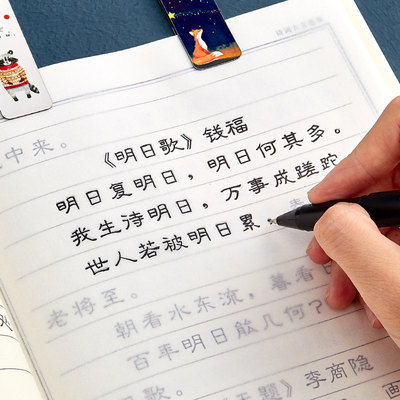 中来。
《明日歌》钱福
明日复明日，明日何其多。
我生待明日，万事成蹉跎
世人若被明日累，
老将至。
朝看水东流，暮看日
百年明日能几何？
歌。
题》李商隐